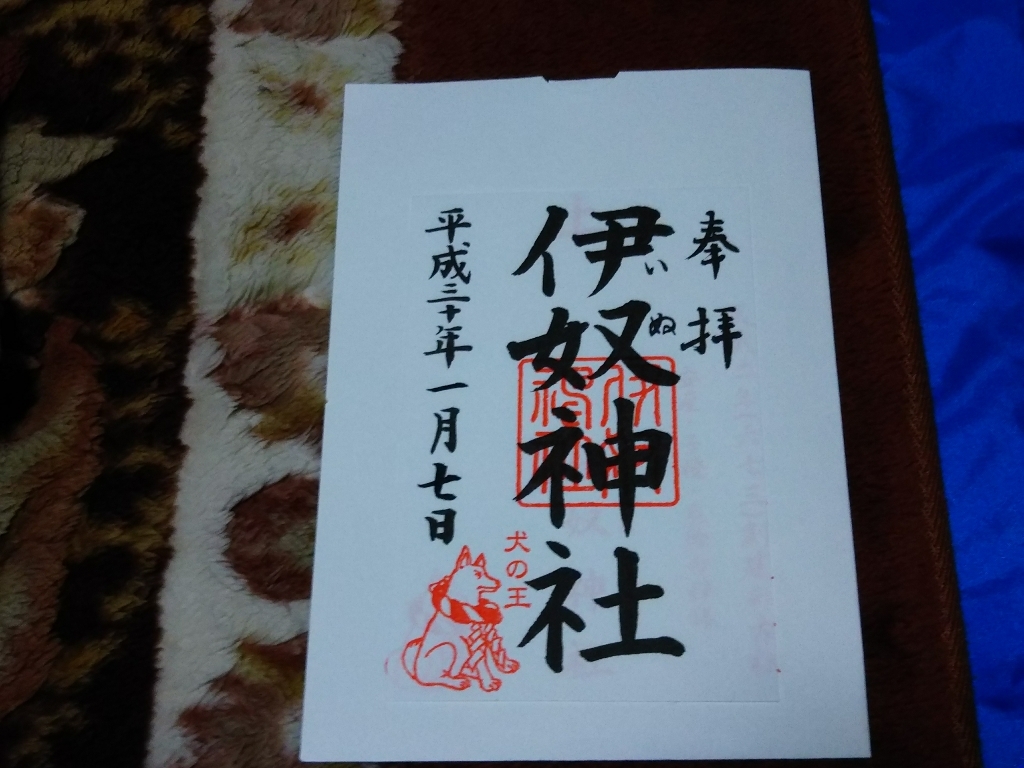 奉拝
伊奴神社
いぬ
平成三十年一月七日
犬の王